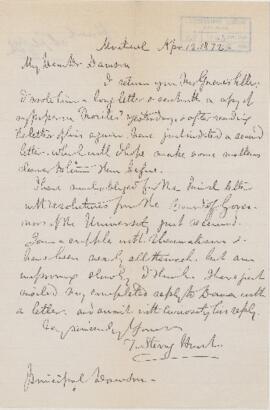 Montreal Apr. 12. 1872
My Dear Dr Dawson
I return you Mr letter.
I wrote him a long letter & sent with a copy of
my paper in yesterday & after reading
the letter of his again have just indited a second
letter which will I hope make some matters
clearer to him than before.
I have much obliged for the kind letter
with resolutions for the Board of Gover-
nors of the University just received.
I am a cripple with rheumatism &
have been nearly all the week, but am
improving slowly I think. I have just
mailed my completed reply to Dana with
a letter, and await with curiosity his reply.
Very sincerely Yours
T. Sterry Hunt.
Principal Dawson